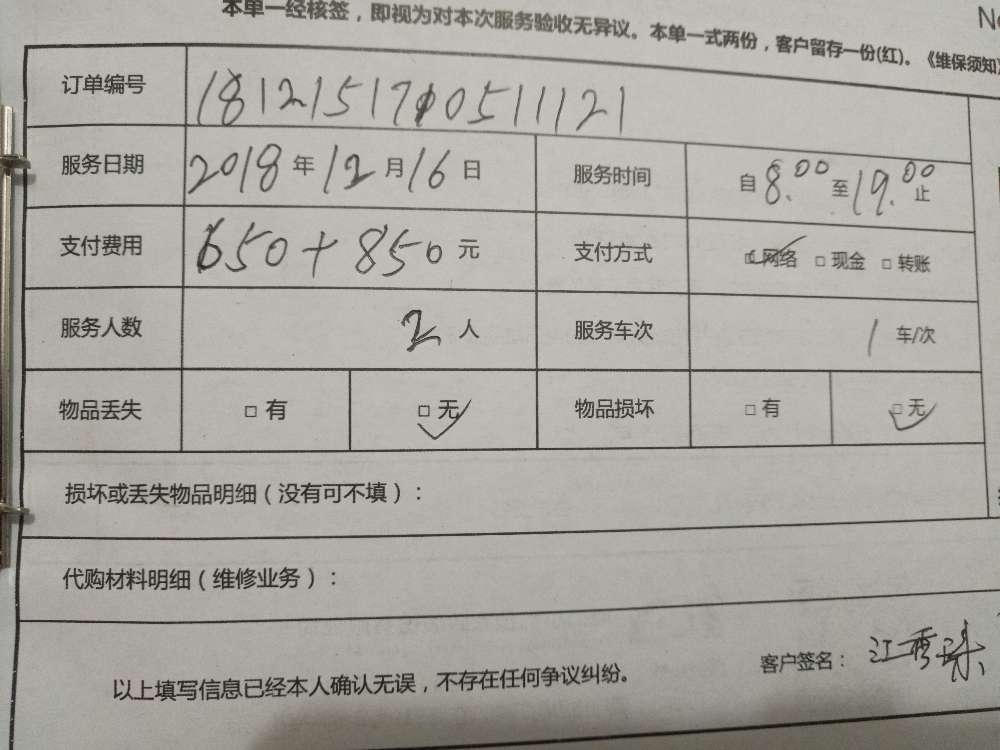 本单一经核签，即视为对本次服务验收无异议。本单一式两份，客户留存一份(红)。《维保须知》
订单编号 1812151710511121
服务日期 2018 年 12 月 16 日 服务时间 自 8.00 至 19.00 止
支付费用 650+850 元 支付方式 ☑ 网络 □ 现金 □ 转账
服务人数 2 人 服务车次 1 车/次
物品丢失 □ 有 ☑ 无 物品损坏 □ 有 ☑ 无
损坏或丢失物品明细（没有可不填）：
代购材料明细（维修业务）：
客户签名： 江秀珠
以上填写信息已经本人确认无误，不存在任何争议纠纷。